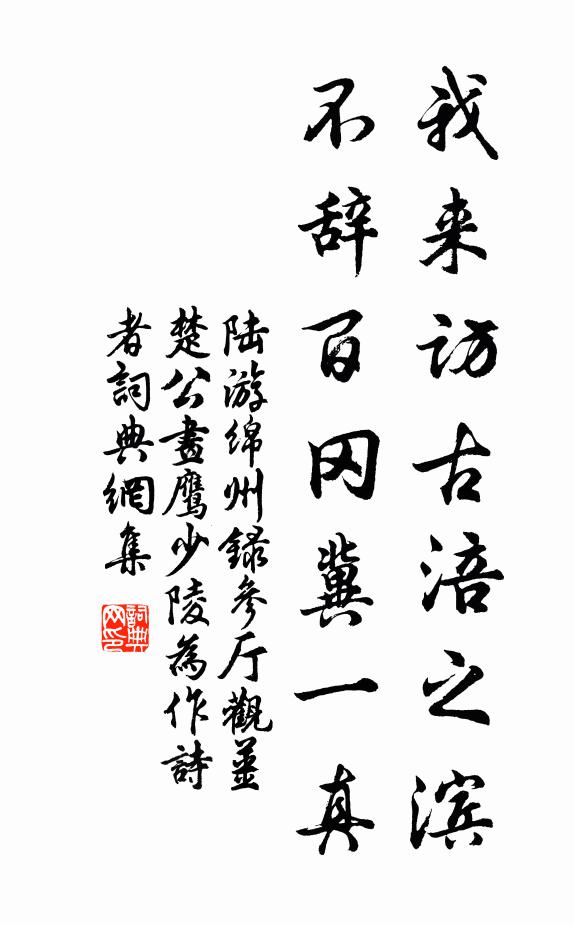 我来访古涪之滨
不辞百冈冀一真
陆游绵州録參厅觀薑
楚公畫鹰少陵為作詩
者詞典網集
詞典
网印